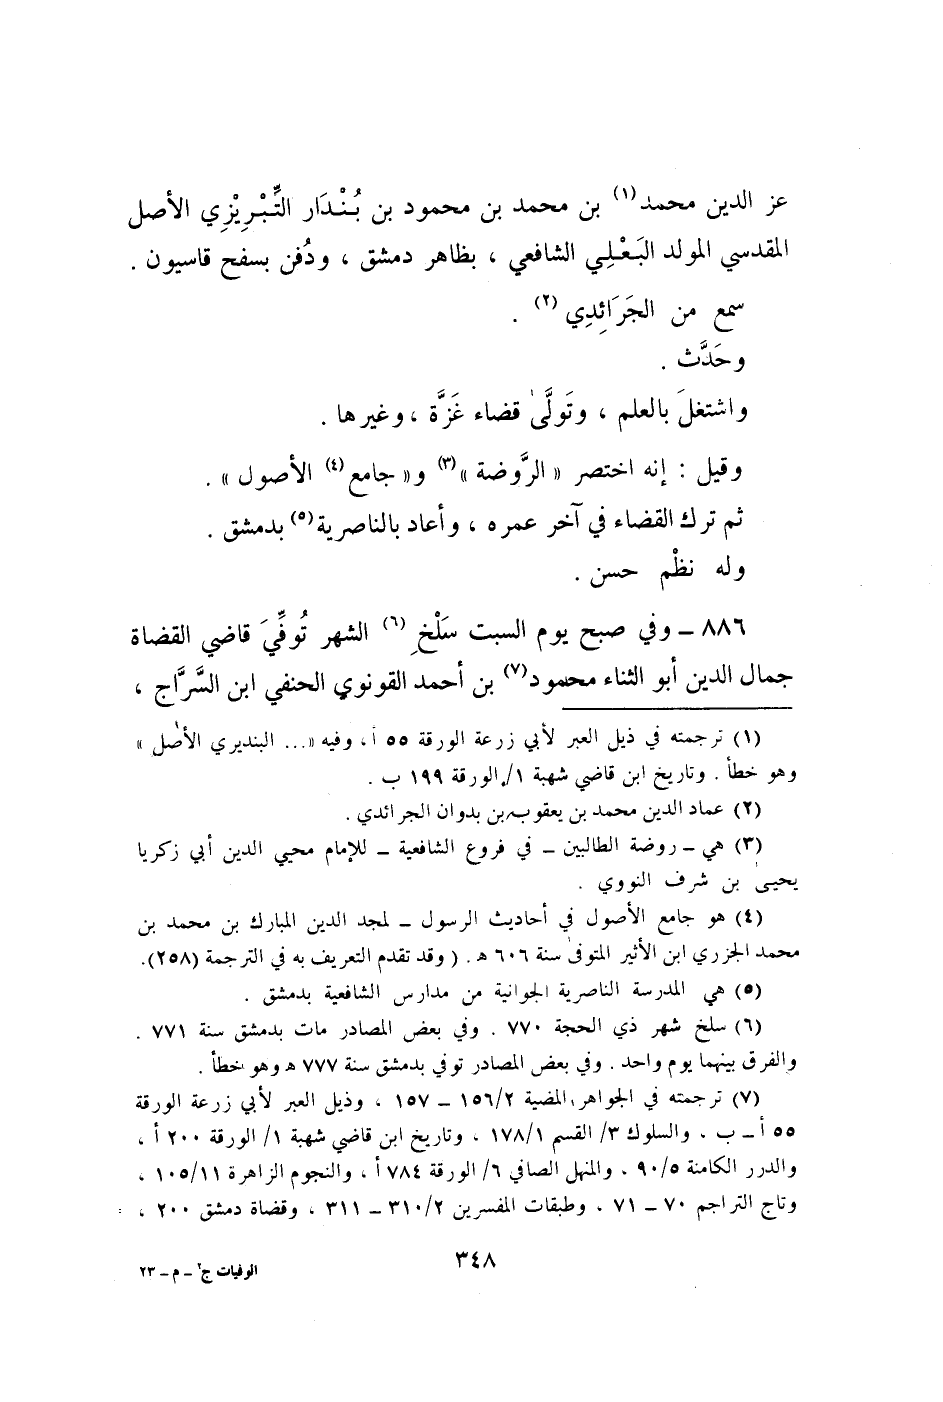 عز الدين محمد(١) بن محمد بن محمود بن بُنْدَار التِّبْرِيْزِي الأصل
المقدسي المولد البَعْلِي الشافعي ، بظاهر دمشق ، ودُفن بسفح قاسيون .
سمع من الجَرَائدِي(٢) .
وحَدَّث .
واشتغلَ بالعلم ، وتَولَّىٰ قضاء غَزَّة ، وغيرها .
وقيل : إنه اختصر « الرَّوضة »(٣) و« جامع(٤) الأصول » .
ثم ترك القضاء في آخر عمره ، وأعاد بالناصرية(٥) بدمشق .
وله نظْم حسن .
٨٨٦ – وفي صبح يوم السبت سَلْخِ(٦) الشهر تُوفِّيَ قاضي القضاة
جمال الدين أبو الثناء محمود(٧) بن أحمد القونوي الحنفي ابن السَّرَّاج ،
(١) ترجمته في ذيل العبر لأبي زرعة الورقة ٥٥ أ ، وفيه «... البنديري الأصل »
وهو خطأ . وتاريخ ابن قاضي شهبة ١/ الورقة ١٩٩ ب .
(٢) عماد الدين محمد بن يعقوب بن بدوان الجرائدي .
(٣) هي – روضة الطالبين – في فروع الشافعية – للإمام محيي الدين أبي زكريا
يحيىٰ بن شرف النووي .
(٤) هو جامع الأصول في أحاديث الرسول – لمجد الدين المبارك بن محمد بن
محمد الجزري ابن الأثير المتوفىٰ سنة ٦٠٦ ه . ( وقد تقدم التعريف به في الترجمة (٢٥٨).
(٥) هي المدرسة الناصرية الجوانية من مدارس الشافعية بدمشق .
(٦) سلخ شهر ذي الحجة ٧٧٠ . وفي بعض المصادر مات بدمشق سنة ٧٧١ .
والفرق بينهما يوم واحد . وفي بعض المصادر توفي بدمشق سنة ٧٧٧ ه وهو خطأ .
(٧) ترجمته في الجواهر المضية ١٥٦/٢ – ١٥٧ ، وذيل العبر لأبي زرعة الورقة
٥٥ أ – ب ، والسلوك ٣/ القسم ١٧٨/١ ، وتاريخ ابن قاضي شهبة ١/ الورقة ٢٠٠ أ ،
والدرر الكامنة ٩٠/٥ ، والمنهل الصافي ٦/ الورقة ٧٨٤ أ ، والنجوم الزاهرة ١٠٥/١١ ،
وتاج التراجم ٧٠ – ٧١ ، وطبقات المفسرين ٣١٠/٢ – ٣١١ ، وقضاة دمشق ٢٠٠ ،
٣٤٨
الوفيات ج٢ – م – ٢٣